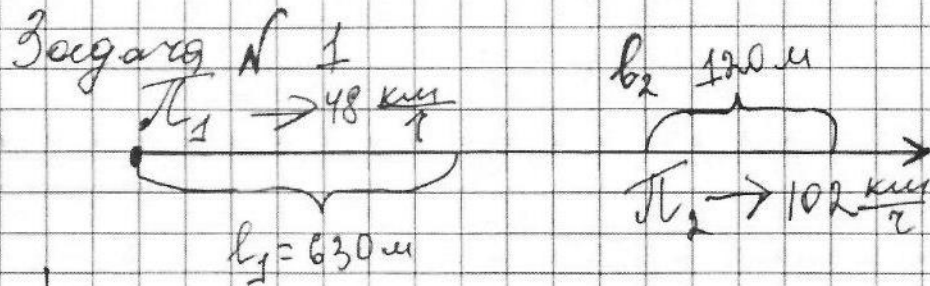 Задача N 1
П₁ → 48 км/г
b₂ 120 м
П₂ → 102 км/г
l₁ = 630 м